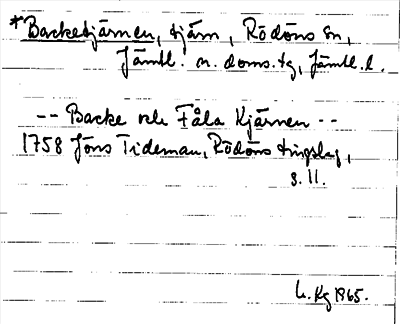 *Backetjärnen, tjärn, Rödöns sn,
Jämtl. n. doms.tg, Jämtl. l.
-- Backe och Fåla Kjärnen --
1758 Jöns Tideman, Rödöns tingslag,
s. 11.
Kg 1965.